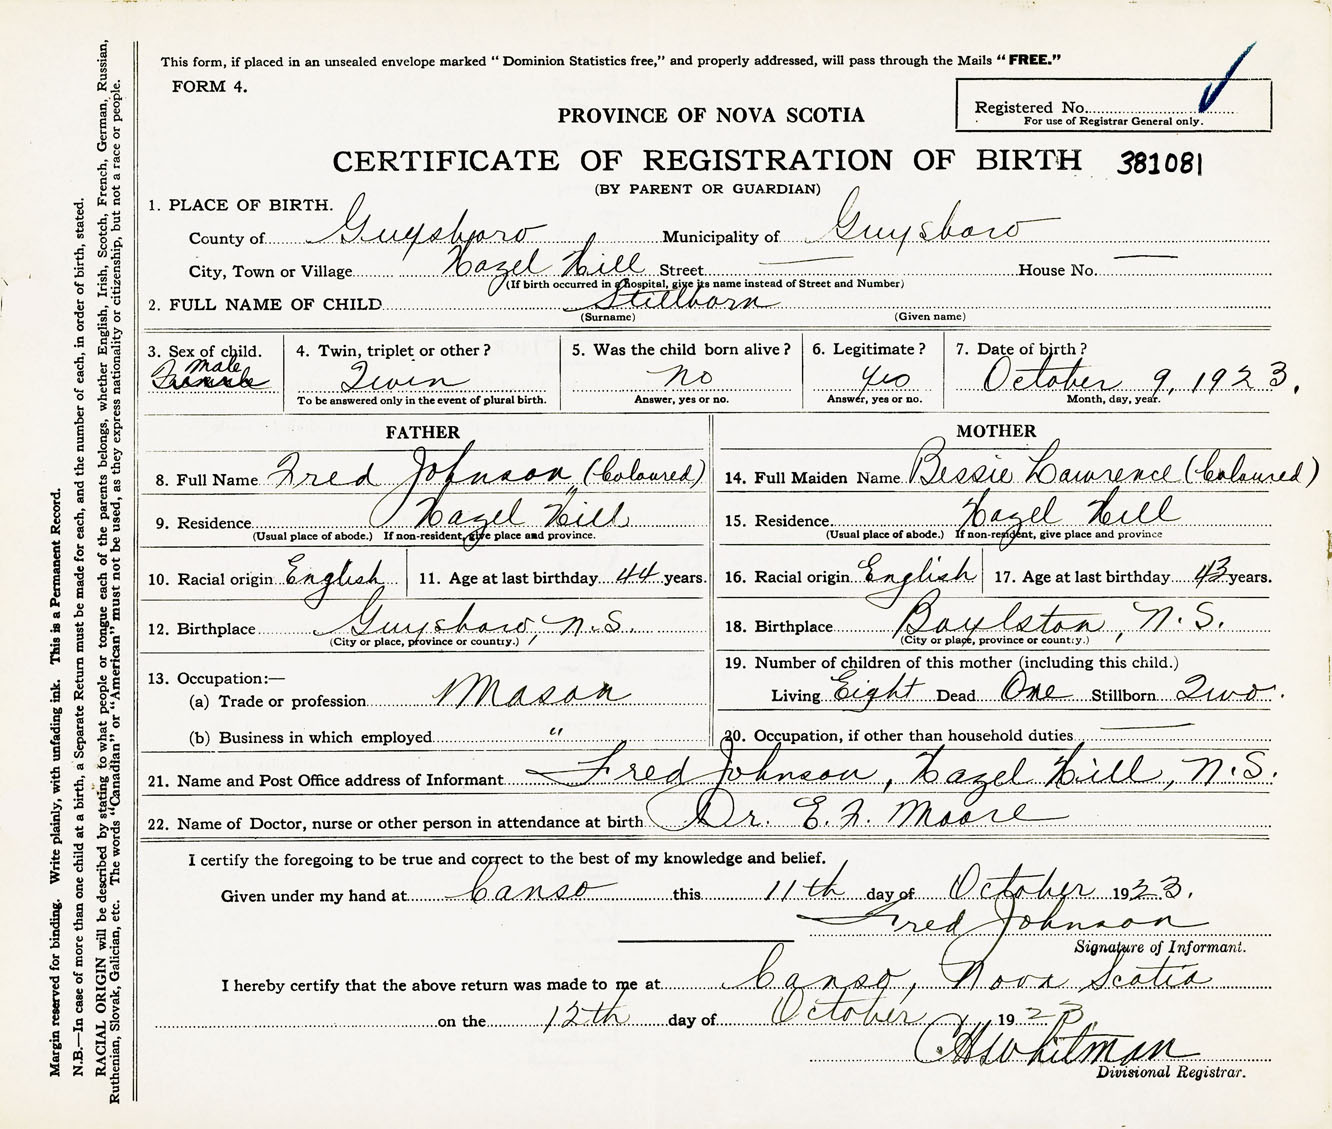 This form, if placed in an unsealed envelope marked " Dominion Statistics free," and properly addressed, will pass through the Mails " FREE."
FORM 4.
Registered No.
For use of Registrar General only.
PROVINCE OF NOVA SCOTIA
CERTIFICATE OF REGISTRATION OF BIRTH 381081
(BY PARENT OR GUARDIAN)
1. PLACE OF BIRTH.
County of Guysboro Municipality of Guysboro
City, Town or Village Hazel Hill Street — House No. —
(If birth occurred in a hospital, give its name instead of Street and Number)
2. FULL NAME OF CHILD Stillborn
(Surname) (Given name)
3. Sex of child. 4. Twin, triplet or other ? 5. Was the child born alive ? 6. Legitimate ? 7. Date of birth ?
Male
Female Twin no yes October 9, 1923.
To be answered only in the event of plural birth. Answer, yes or no. Answer, yes or no. Month, day, year.
FATHER MOTHER
8. Full Name Fred Johnson (Coloured) 14. Full Maiden Name Bessie Lawrence (Coloured)
9. Residence Hazel Hill 15. Residence Hazel Hill
(Usual place of abode.) If non-resident, give place and province. (Usual place of abode.) If non-resident, give place and province
10. Racial origin English 11. Age at last birthday 44 years. 16. Racial origin English 17. Age at last birthday 43 years.
12. Birthplace Guysboro, N.S. 18. Birthplace Boylston, N.S.
(City or place, province or country.) (City or place, province or country.)
13. Occupation:— 19. Number of children of this mother (including this child.)
(a) Trade or profession Mason Living Eight Dead One Stillborn Two.
(b) Business in which employed " 20. Occupation, if other than household duties —
21. Name and Post Office address of Informant Fred Johnson, Hazel Hill, N.S.
22. Name of Doctor, nurse or other person in attendance at birth Dr. E. F. Moore
I certify the foregoing to be true and correct to the best of my knowledge and belief.
Given under my hand at Canso this 11th day of October 1923.
Fred Johnson
Signature of Informant.
I hereby certify that the above return was made to me at Canso, Nova Scotia
on the 12th day of October 1923.
C H Whitman
Divisional Registrar.
Margin reserved for binding. Write plainly, with unfading ink. This is a Permanent Record.
N.B.—In case of more than one child at a birth, a Separate Return must be made for each, and the number of each, in order of birth, stated.
RACIAL ORIGIN will be described by stating to what people or tongue each of the parents belongs, whether English, Irish, Scotch, French, German, Russian,
Ruthenian, Slovak, Galician, etc. The words "Canadian" or "American" must not be used, as they express nationality or citizenship, but not a race or people.